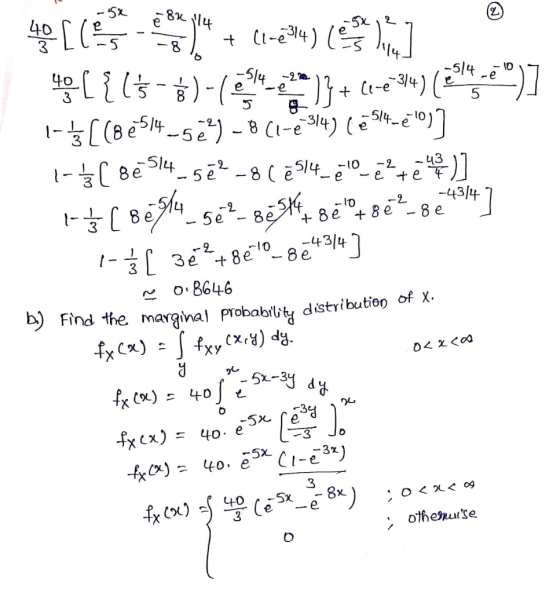 ②
40/3 [ ( e^{-5x}/-5 - e^{-8x}/-8 )_0^{1/4} + (1-e^{-3/4}) ( e^{-5x}/-5 )_{1/4}^2 ]
40/3 [ { (1/5 - 1/8) - ( e^{-5/4}/5 - e^{-2}/8 ) } + (1-e^{-3/4}) ( e^{-5/4} - e^{-10} / 5 ) ]
1 - 1/3 [ (8e^{-5/4} - 5e^{-2}) - 8 (1-e^{-3/4}) (e^{-5/4} - e^{-10}) ]
1 - 1/3 [ 8e^{-5/4} - 5e^{-2} - 8 ( e^{-5/4} - e^{-10} - e^{-2} + e^{-43/4} ) ]
1 - 1/3 [ 8e^{-5/4} - 5e^{-2} - 8e^{-5/4} + 8e^{-10} + 8e^{-2} - 8e^{-43/4} ]
1 - 1/3 [ 3e^{-2} + 8e^{-10} - 8e^{-43/4} ]
≃ 0.8646
b) Find the marginal probability distribution of X.
f_X(x) = ∫_y f_{XY}(x,y) dy. 0<x<∞
f_X(x) = 40 ∫_0^x e^{-5x-3y} dy
f_X(x) = 40. e^{-5x} [ e^{-3y}/-3 ]_0^x
f_X(x) = 40. e^{-5x} (1-e^{-3x})/3
f_X(x) = { 40/3 (e^{-5x} - e^{-8x}) ; 0<x<∞
0 ; otherwise